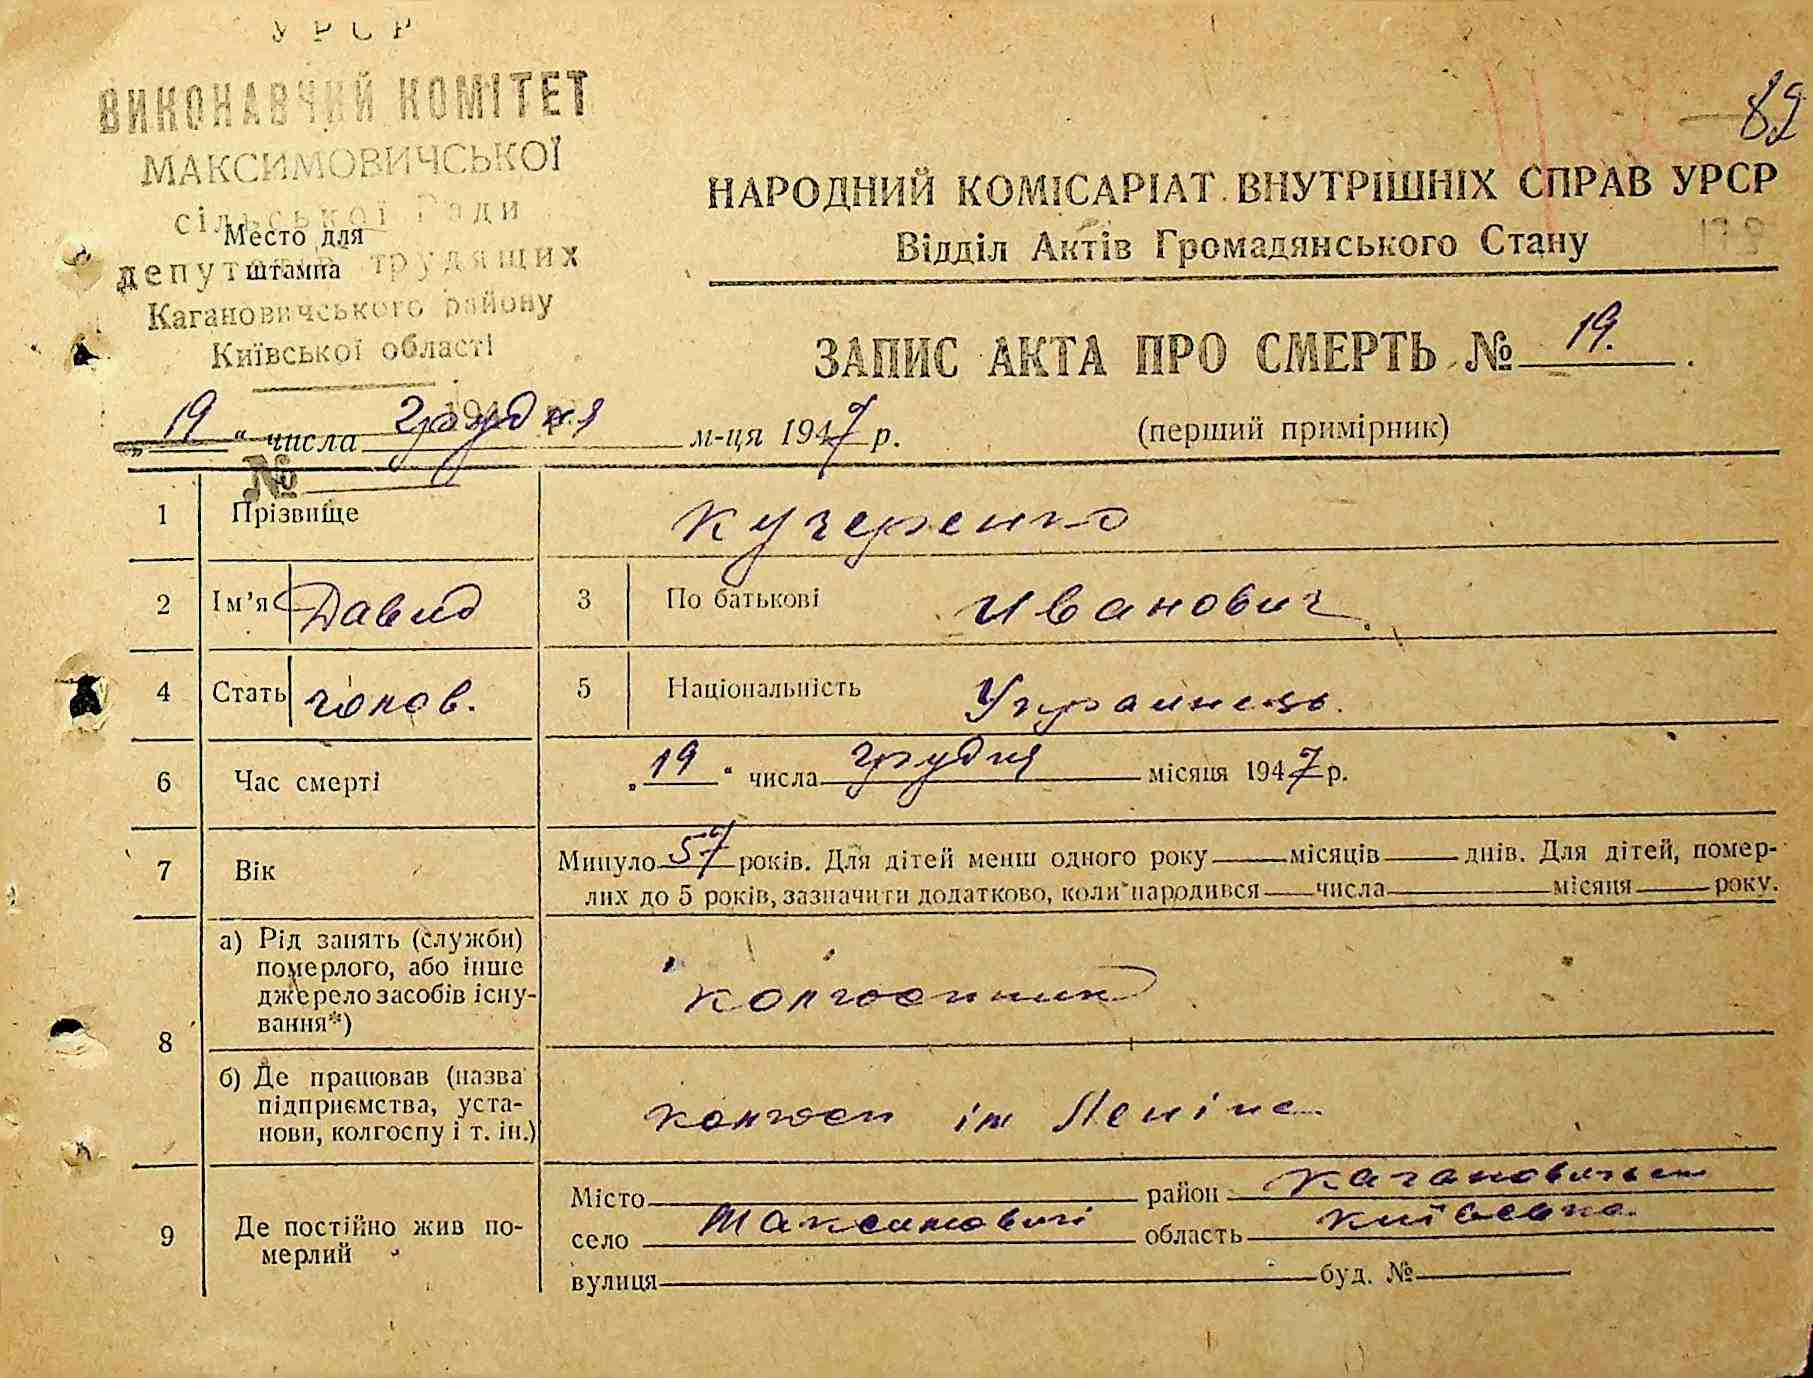 УРСР
ВИКОНАВЧИЙ КОМІТЕТ
МАКСИМОВИЧСЬКОЇ
сільської Ради
депутатів трудящих
Кагановичського району
Київської області
Место для
штампа
№
89
НАРОДНИЙ КОМІСАРІАТ ВНУТРІШНІХ СПРАВ УРСР
Відділ Актів Громадянського Стану
ЗАПИС АКТА ПРО СМЕРТЬ № 19.
„19“ числа грудня м-ця 1947 р. (перший примірник)
1 Прізвище Кучеренко
2 Ім'я Давид 3 По батькові Иванович
4 Стать чолов. 5 Національність Украинець.
6 Час смерті „19“ числа грудня місяця 1947 р.
7 Вік Минуло 57 років. Для дітей менш одного року місяців днів. Для дітей, помер-
лих до 5 років, зазначити додатково, коли народився числа місяця року.
8 а) Рід занять (служби)
померлого, або інше
джерело засобів існу-
вання*) колгоспник
б) Де працював (назва
підприємства, уста-
нови, колгоспу і т. ін.) колгосп ім Леніна
9 Де постійно жив по-
мерлий
Місто район Кагановичськ
село Максимовичі область Київська
вулиця буд. №